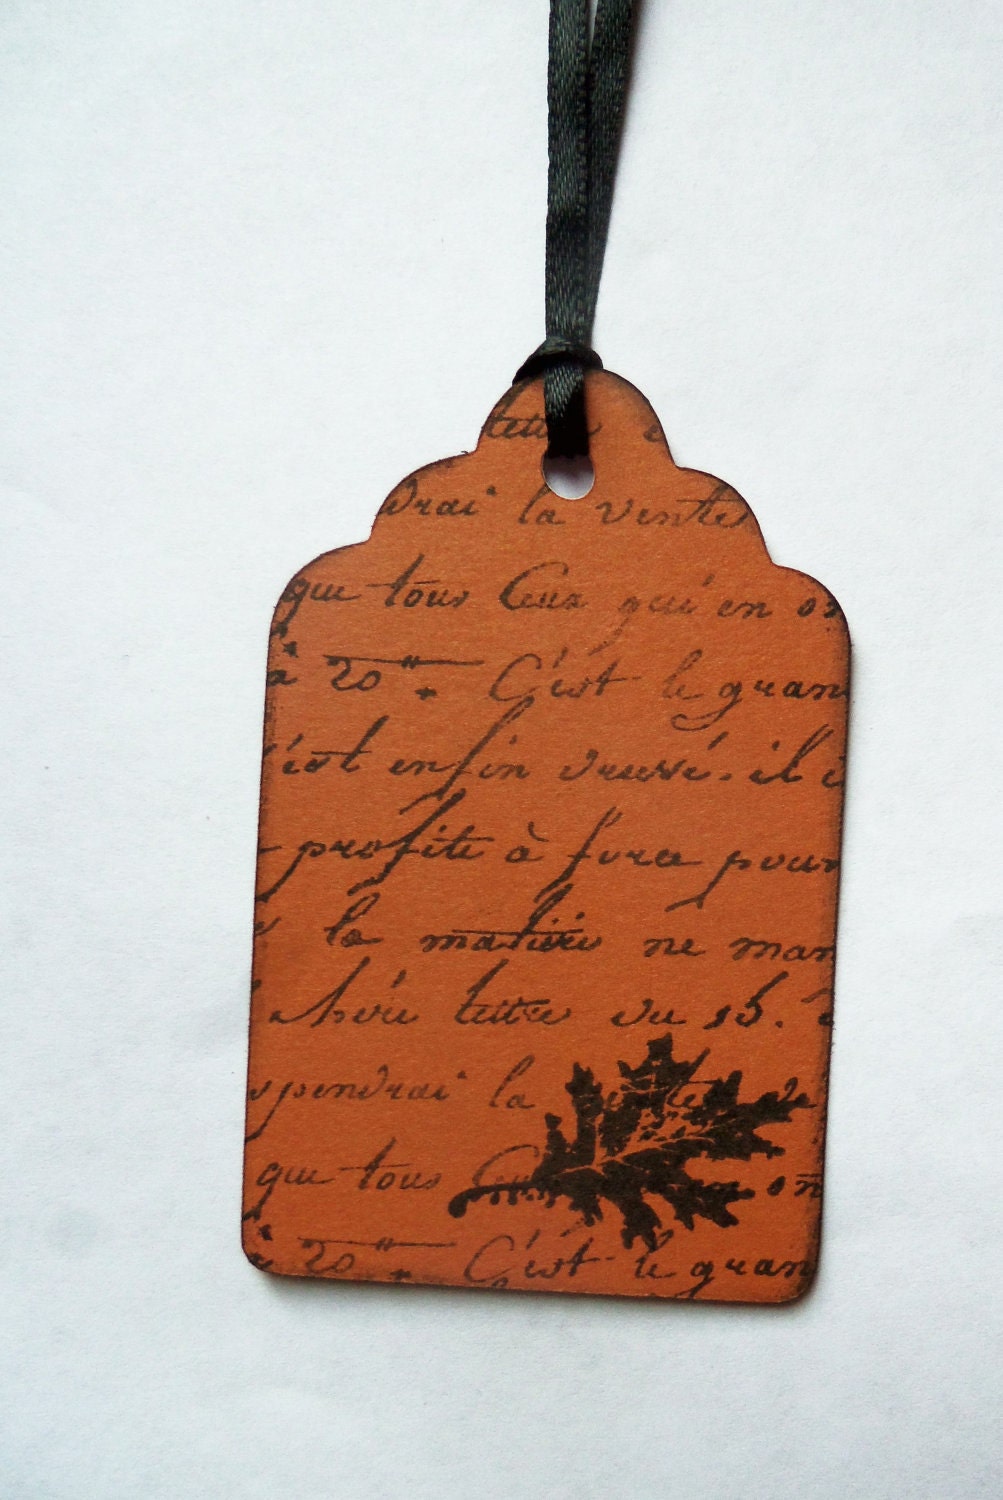 lettre
drai la vente
que tous Ceux qui en on
à 20 " C'est le gran
c'est enfin il
profite à pour
la matière ne man
lettre du 15.
spendrai la vente de
que tous Ceux en on
à 20 " C'est le gran